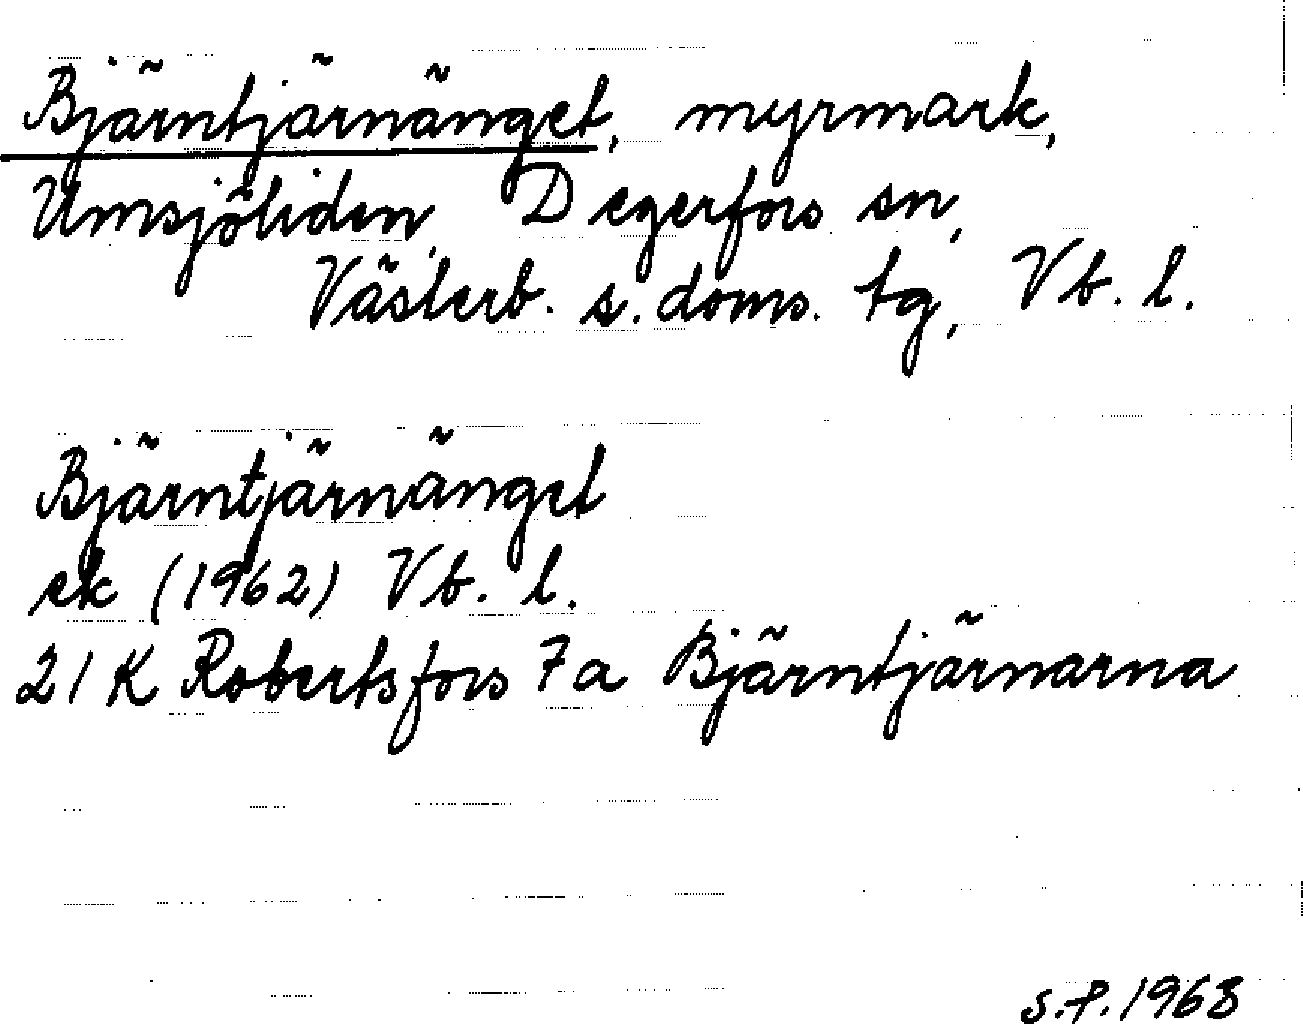 Bjärntjärnänget, myrmark,
Umsjöliden, Degerfors sn,
Västerb. s. doms. tg, Vb. l.
Bjärntjärnänget
ek (1962) Vb. l.
21K Robertsfors 7a Bjärntjärnarna
S.P. 1968